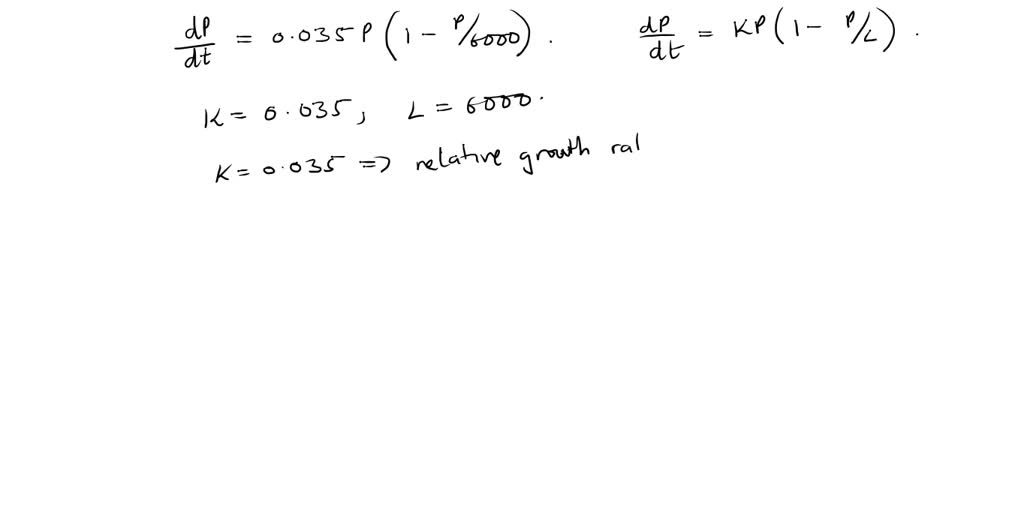 dP/dt = 0.035 P (1 - P/6000). dP/dt = KP (1 - P/L).
K = 0.035, L = 6000.
K = 0.035 => relative growth ral